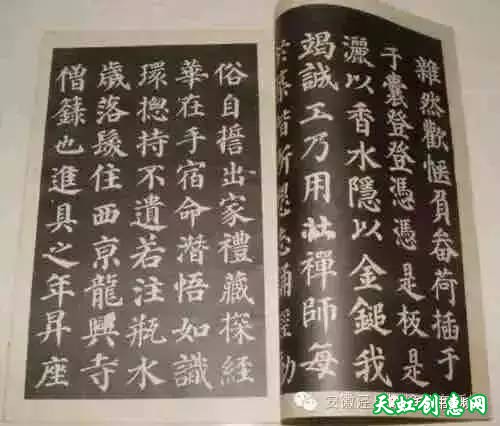 雜然歡愜負畚荷插于
于囊登登憑憑是板是
灑以香水隱以金鎚我
竭誠工乃用壯禪師每
於築階所懇志誦經勵
俗自誓出家禮藏探經
華在手宿命潛悟如識
環揔持不遺若注瓶水
歲落髮住西京龍興寺
僧籙也進具之年昇座
安徽
天虹创意网